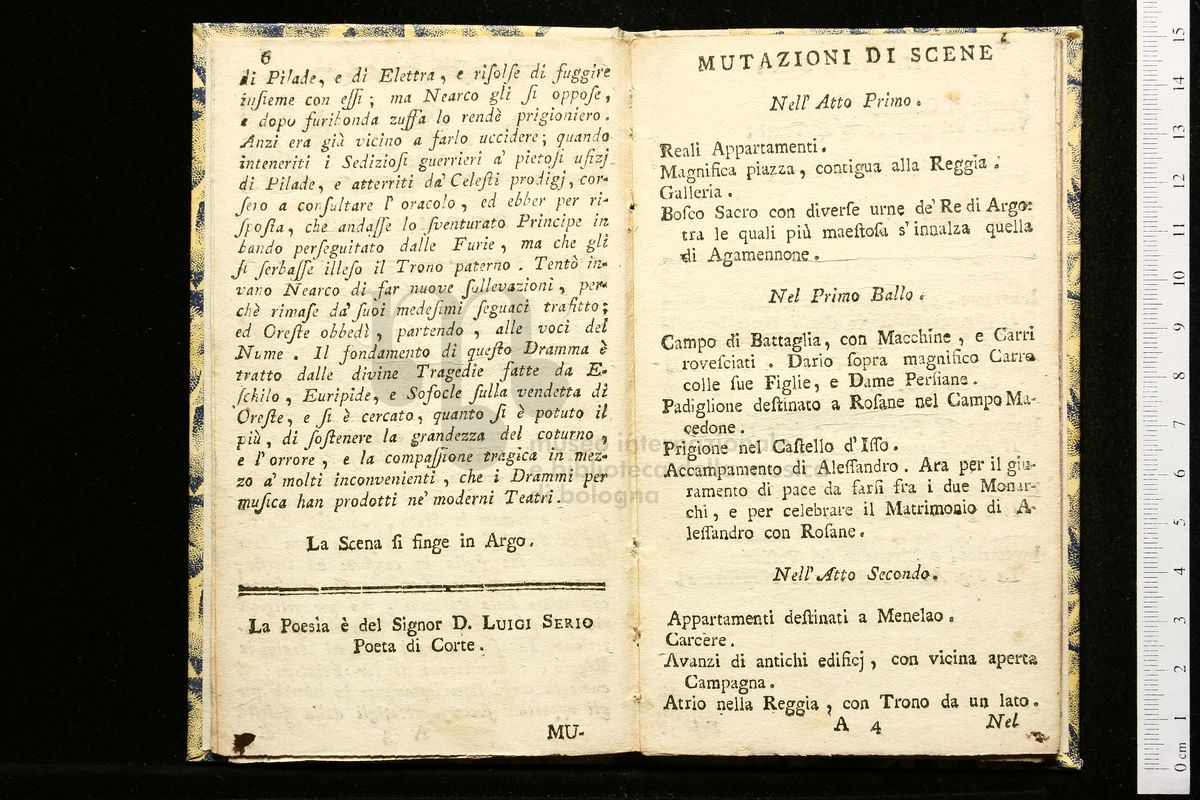 6
di Pilade, e di Elettra, e riſolſe di fuggire
inſieme con eſſi; ma Nearco gli ſi oppoſe,
e dopo furibonda zuffa lo rendè prigioniero.
Anzi era già vicino a farlo uccidere; quando
inteneriti i Sedizioſi guerrieri a' pietoſi ufizj
di Pilade, e atterriti da' Celeſti prodigj, cor-
ſero a conſultare l' oracolo, ed ebber per ri-
ſpoſta, che andaſſe lo ſventurato Principe in
bando perſeguitato dalle Furie, ma che gli
ſi ſerbaſſe illeſo il Trono paterno. Tentò in-
vano Nearco di far nuove ſollevazioni, per-
chè rimaſe da' ſuoi medeſimi ſeguaci trafitto;
ed Oreſte obbedì, partendo, alle voci del
Nume. Il fondamento di queſto Dramma è
tratto dalle divine Tragedie fatte da E-
ſchilo, Euripide, e Sofocle ſulla vendetta di
Oreſte, e ſi è cercato, quanto ſi è potuto il
più, di ſoſtenere la grandezza del coturno,
e l'orrore, e la compaſſione tragica in mez-
zo a' molti inconvenienti, che i Drammi per
muſica han prodotti ne' moderni Teatri.
La Scena ſi finge in Argo.
La Poesia è del Signor D. LUIGI SERIO
Poeta di Corte.
MU-
MUTAZIONI DI SCENE
Nell' Atto Primo.
Reali Appartamenti.
Magnifica piazza, contigua alla Reggia.
Galleria.
Boſco Sacro con diverſe urne de' Re di Argo:
tra le quali più maeſtoſa s'innalza quella
di Agamennone.
Nel Primo Ballo.
Campo di Battaglia, con Macchine, e Carri
roveſciati. Dario ſopra magnifico Carro
colle ſue Figlie, e Dame Perſiane.
Padiglione deſtinato a Roſane nel Campo Ma-
cedone.
Prigione nel Caſtello d'Iſſo.
Accampamento di Aleſſandro. Ara per il giu-
ramento di pace da farſi fra i due Monar-
chi, e per celebrare il Matrimonio di A-
leſſandro con Roſane.
Nell' Atto Secondo.
Appartamenti deſtinati a Menelao.
Carcere.
Avanzi di antichi edificj, con vicina aperta
Campagna.
Atrio nella Reggia, con Trono da un lato.
A 4
Nel
museo internazionale
e biblioteca della musica
di bologna
0 cm 1 2 3 4 5 6 7 8 9 10 11 12 13 14 15